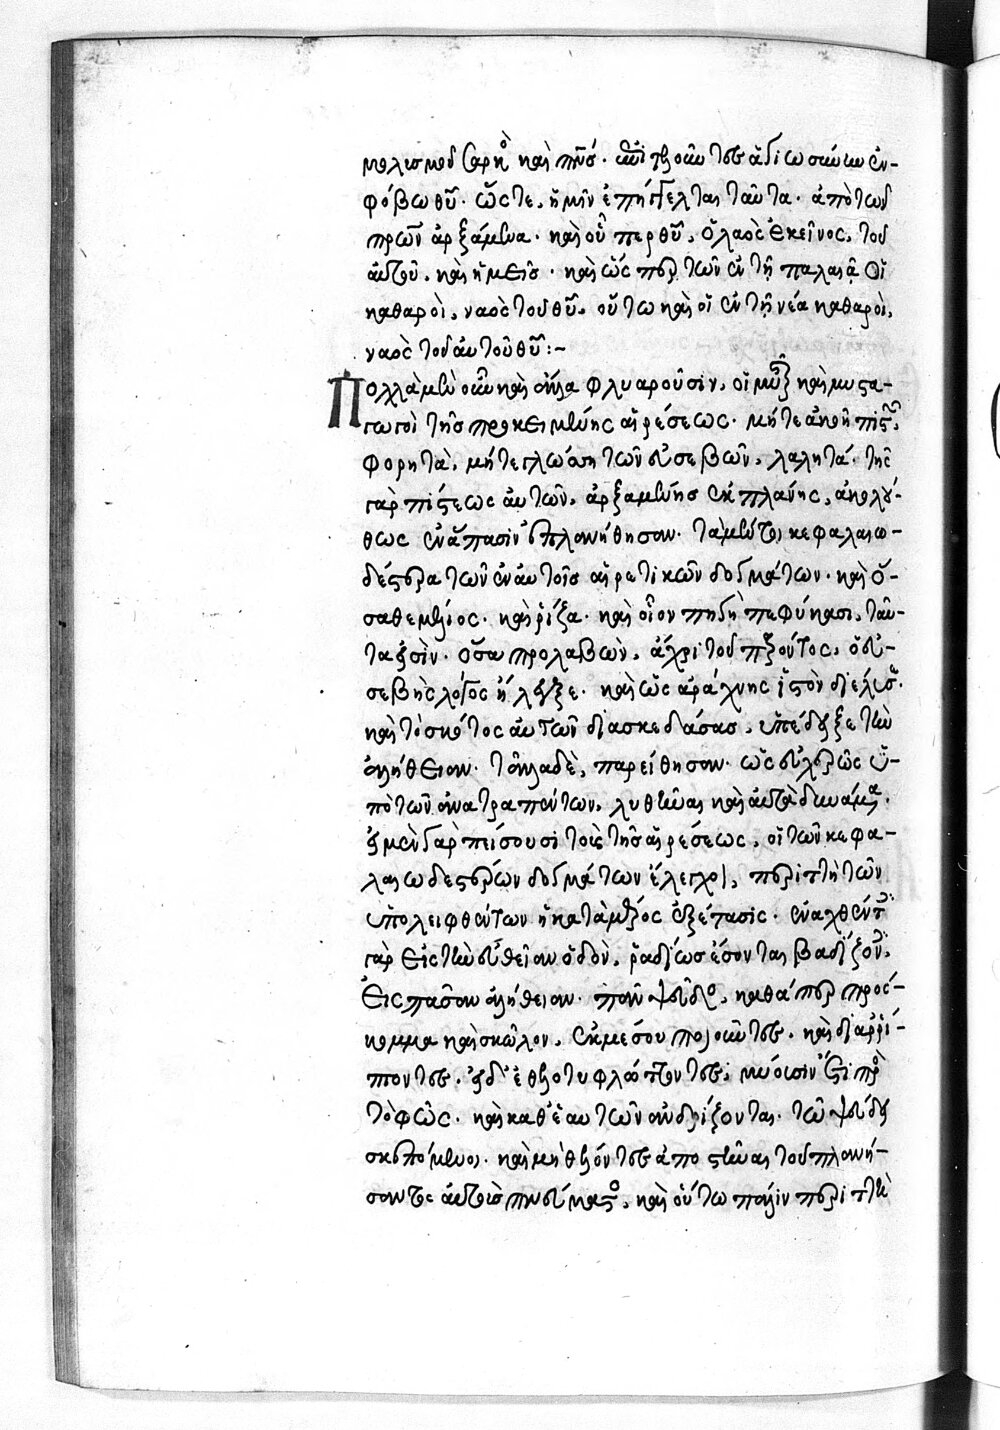 μολυσμοῦ σαρκὸς καὶ πνς. ἐπιτελοῦντες ἁγιωσύνην ἐν
φόβω θῦ. ὥστε, ἡμῖν ἐπήγγελται ταῦτα. ἀπὸ τῶν
πρων ἀρξάμενα. καὶ οὗπερ θῦ, ὁ λαὸς ἐκεῖνος, τοῦ
αὐτοῦ, καὶ ἡμεῖς. καὶ ὥσπερ τῶν ἐν τῆ παλαιᾶ οἱ
καθαροὶ, ναὸς τοῦ θῦ, οὕτω καὶ οἱ ἐν τῆ νέα καθαροὶ,
ναὸς τοῦ αὐτοῦ θῦ:~
Πολλὰ μὲν οὖν καὶ ἄλλα φλυαροῦσιν, οἱ μύσται καὶ μυστα-
γωγοὶ τῆς προκειμένης αἱρέσεως. μήτε ἀκοῆ πιστῶν,
φορητὰ, μήτε γλώσση τῶν εὐσεβῶν, λαλητά. τῆς
γὰρ πίστεως αὐτῶν, ἀρξαμένης ἐκ πλάνης, ἀκολού-
θως ἐν ἅπασιν ἀπεπλανήθησαν. τὰ μέντοι κεφαλαιω-
δέστερα τῶν ἐν αὐτοῖς αἱρετικῶν δογμάτων. καὶ ὅ-
σα θεμέλιος. καὶ ῥίζα. καὶ οἷον πηδὴ πεφύκασι, ταῦ-
τά ἐστιν. ὅσα προλαβὼν, ἄχρι τοῦ παρόντος, ὁ εὐ-
σεβὴς λόγος ἤλεγξε. καὶ ὡς ἀράχνης ἱστὸν διέλυσε.
καὶ τὸ σκότος αὐτῶν διασκεδάσας, ὑπέδειξε τὴν
ἀλήθειαν. τἄλλα δὲ, παρείθησαν. ὡς εὐχερῶς ὑ-
πὸ τῶν ἀνατραπέντων, λυθῆναι καὶ αὐτὰ δυνάμενα.
εἰ μὲν γὰρ πείσουσι τοὺς τῆς αἱρέσεως, οἱ τῶν κεφα-
λαιωδεστέρων δογμάτων ἔλεγχοι, περιττὴ τῶν
ὑπολειφθέντων ἡ κατὰ μέρος ἐξέτασις. ἐναχθέντες
γὰρ εἰς τὴν εὐθεῖαν ὁδὸν, ῥαδίως ἔσονται βαδίζοντες,
εἰς πᾶσαν ἀλήθειαν. πᾶν ψεῦδος, καθάπερ πρόσ-
κομμα καὶ σκῶλον, ἐκ μέσου ποιοῦντες. καὶ διαρρί-
πτοντες. εἰ δ' ἐθελοτυφλώττοντες, μύουσιν ἔτι πρὸς
τὸ φῶς. καὶ καθ' ἑαυτῶν ἀνδρίζονται. τῶ ψεύδει
σκεπόμενοι. καὶ μὴ θέλοντες ἀποστῆναι τοῦ πλανή-
σαντος αὐτοὺς πνεύματος, καὶ οὕτω πάλιν περιττὴ